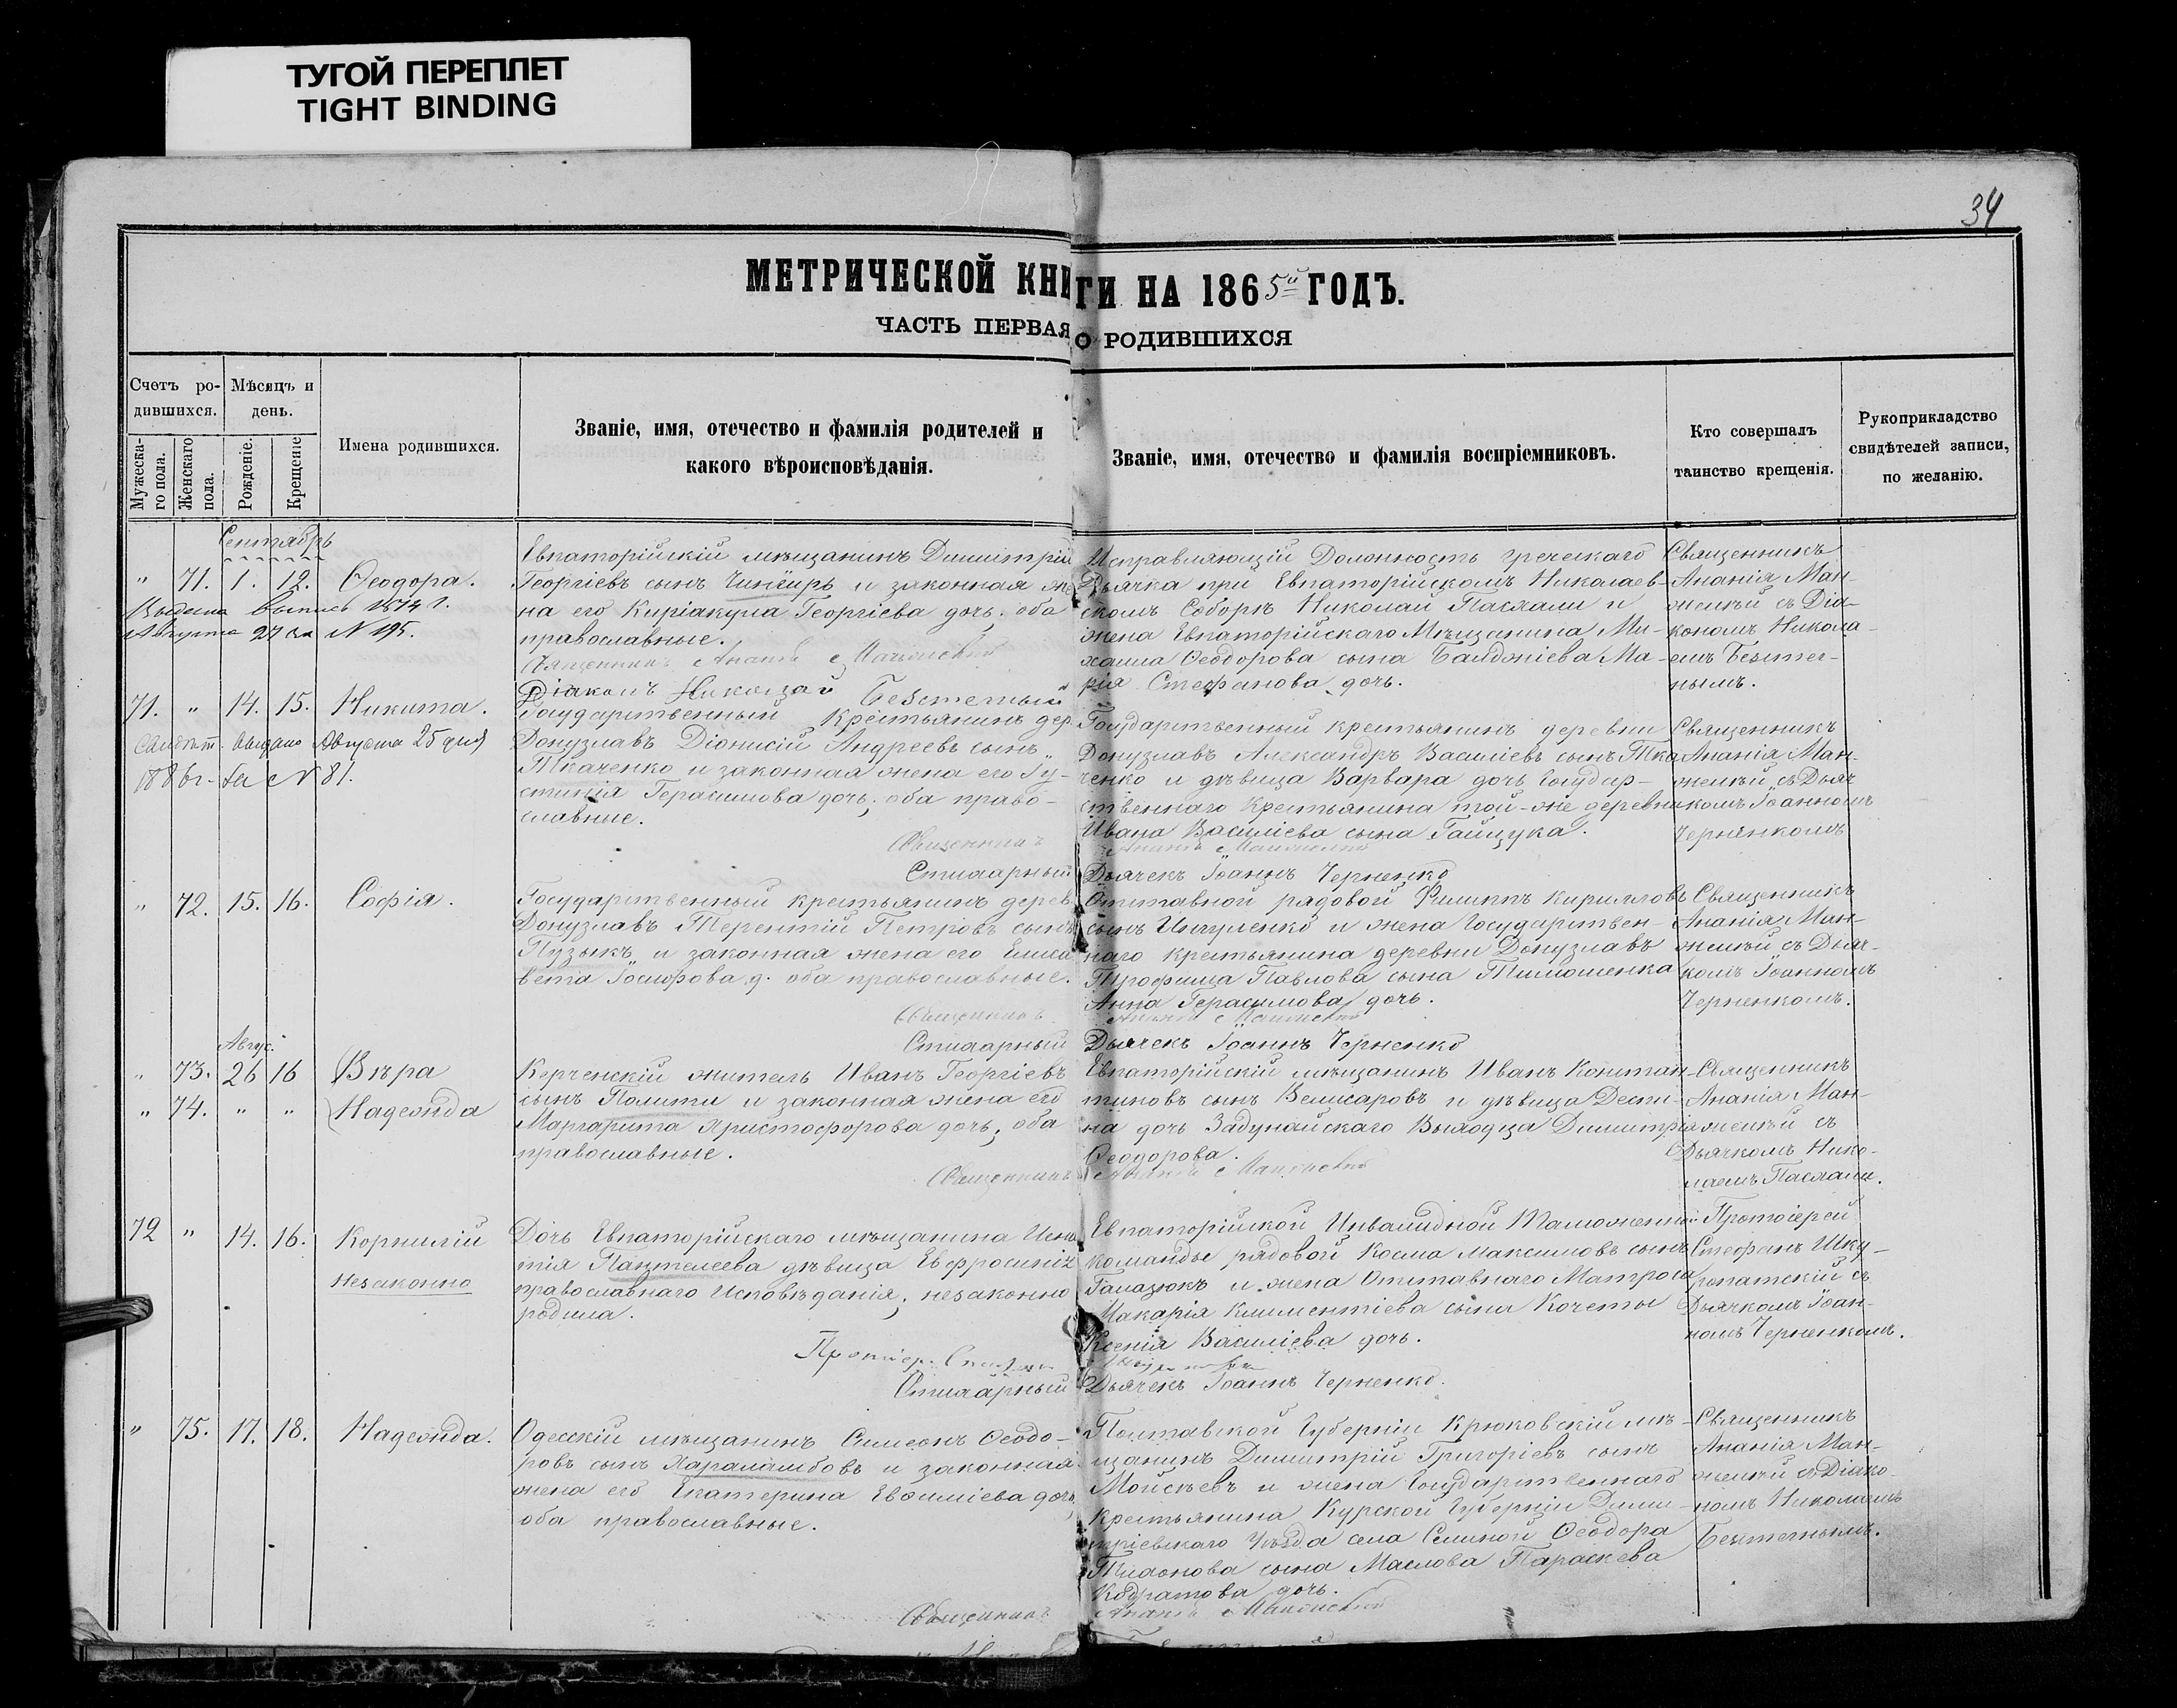 ТУГОЙ ПЕРЕПЛЕТ
TIGHT BINDING
34
МЕТРИЧЕСКОЙ КНИГИ НА 1865й ГОДЪ.
ЧАСТЬ ПЕРВАЯ О РОДИВШИХСЯ
Счетъ ро-
дившихся.
Мужеска-
го пола.
Женскаго
пола.
Мѣсяцъ и
день.
Рожденіе.
Крещеніе
Имена родившихся.
Званіе, имя, отечество и фамилія родителей и
какого вѣроисповѣданія.
Званіе, имя, отечество и фамилія воспріемниковъ.
Кто совершалъ
таинство крещенія.
Рукоприкладство
свидѣтелей записи,
по желанію.
Сентябрь
" 71. 1. 12. Ѳеодора.
Выдана выпись 1874 г.
Августа 27 за N 195.
Евпаторійскій мѣщанинъ Димитрій
Георгіевъ сынъ Чинёиръ и законная же
на его Киріакула Георгіева дочь; оба
православные.
Священникъ Ананія
Діаконъ Николай Безсчетный
Исправляющій Должность греческаго
Дьячка при Евпаторійскомъ Николаев-
скомъ Соборѣ Николай Пасхали и
жена Евпаторійскаго Мѣщанина Ми-
хаила Ѳеодорова сына Балджіева Ма-
рія Стефанова дочь.
Священникъ
Ананія Ман-
желѣй съ Діа-
кономъ Никола-
емъ Безсчет-
нымъ.
71. " 14. 15. Никита.
выдано Августа 25 дня
1886 г. за N 81.
Государственный крестьянинъ дер.
Донузлавъ Діонисій Андреевъ сынъ
Ткаченко и законная жена его Гу-
стинія Герасимова дочь; оба право-
славные.
Священникъ
Стихарный Дьячекъ Іоаннъ Черненко
Государственный крестьянинъ деревни
Донузлавъ Александръ Василіевъ сынъ Тка
ченко и дѣвица Варвара дочь Государ-
ственнаго крестьянина той-же деревни
Ивана Василіева сына Гайцука.
Священникъ
Ананія Ман-
желѣй съ Дьяч
комъ Іоанномъ
Черненкомъ
" 72. 15. 16. Софія.
Государственный крестьянинъ дерев.
Донузлавъ Терентій Петровъ сынъ
Пузыкъ и законная жена его Елиса
вета Іосифова д. оба православные.
Священникъ
Стихарный Дьячекъ Іоаннъ Черненко
Отставной рядовой Филиппъ Кирилловъ
сынъ Ингуленко и жена Государствен-
наго крестьянина деревни Донузлавъ
Трофима Павлова сына Тимошенка
Анна Герасимова дочь.
Священникъ
Ананія Ман-
желѣй съ Дьяч-
комъ Іоанномъ
Черненкомъ.
Авгус.
" 73. 26 16 Вѣра
" 74. " " Надежда
Керченскій житель Иванъ Георгіевъ
сынъ Полити и законная жена его
Маргарита Христофорова дочь, оба
православные.
Священникъ
Евпаторійскій мѣщанинъ Иванъ Констан-
тиновъ сынъ Велисаровъ и дѣвица Деспи-
на дочь Задунайскаго Выходца Димитрія
Ѳеодорова.
Священникъ
Ананія Ман-
желѣй съ
Дьячкомъ Нико-
лаемъ Пасхали.
72 " 14. 16. Корнилій
незаконно
Дочь Евпаторійскаго мѣщанина Игна
тія Пантелеева дѣвица Евфросинія
православнаго Исповѣданія; незаконно
родила.
Стихарный Дьячекъ Іоаннъ Черненко.
Евпаторійской Инвалидной Таможенной
команды рядовой Косма Максимовъ сынъ
Галазюкъ и жена Отставнаго Матроса
Макарія Климентіева сына Кочеты
Ксенія Василіева дочь.
Протоіерей
Стефанъ Шку-
ропатскій съ
Дьячкомъ Іоан-
номъ Черненкомъ.
" 75. 17. 18. Надежда.
Одесскій мѣщанинъ Симеонъ Ѳеодо-
ровъ сынъ Хараламбовъ и законная
жена его Екатерина Евѳиміева дочь,
оба православные.
Священникъ
Полтавской Губерніи Крюковскій мѣ-
щанинъ Димитрій Григоріевъ сынъ
Мойсѣевъ и жена Государственнаго
Крестьянина Курской Губерніи Дими-
тріевскаго Уѣзда села Селиной Ѳеодора
Тихонова сына Маслова Параскева
Кодратова дочь.
Священникъ
Ананія Ман-
желѣй съ Діако-
номъ Николаемъ
Безсчетнымъ.